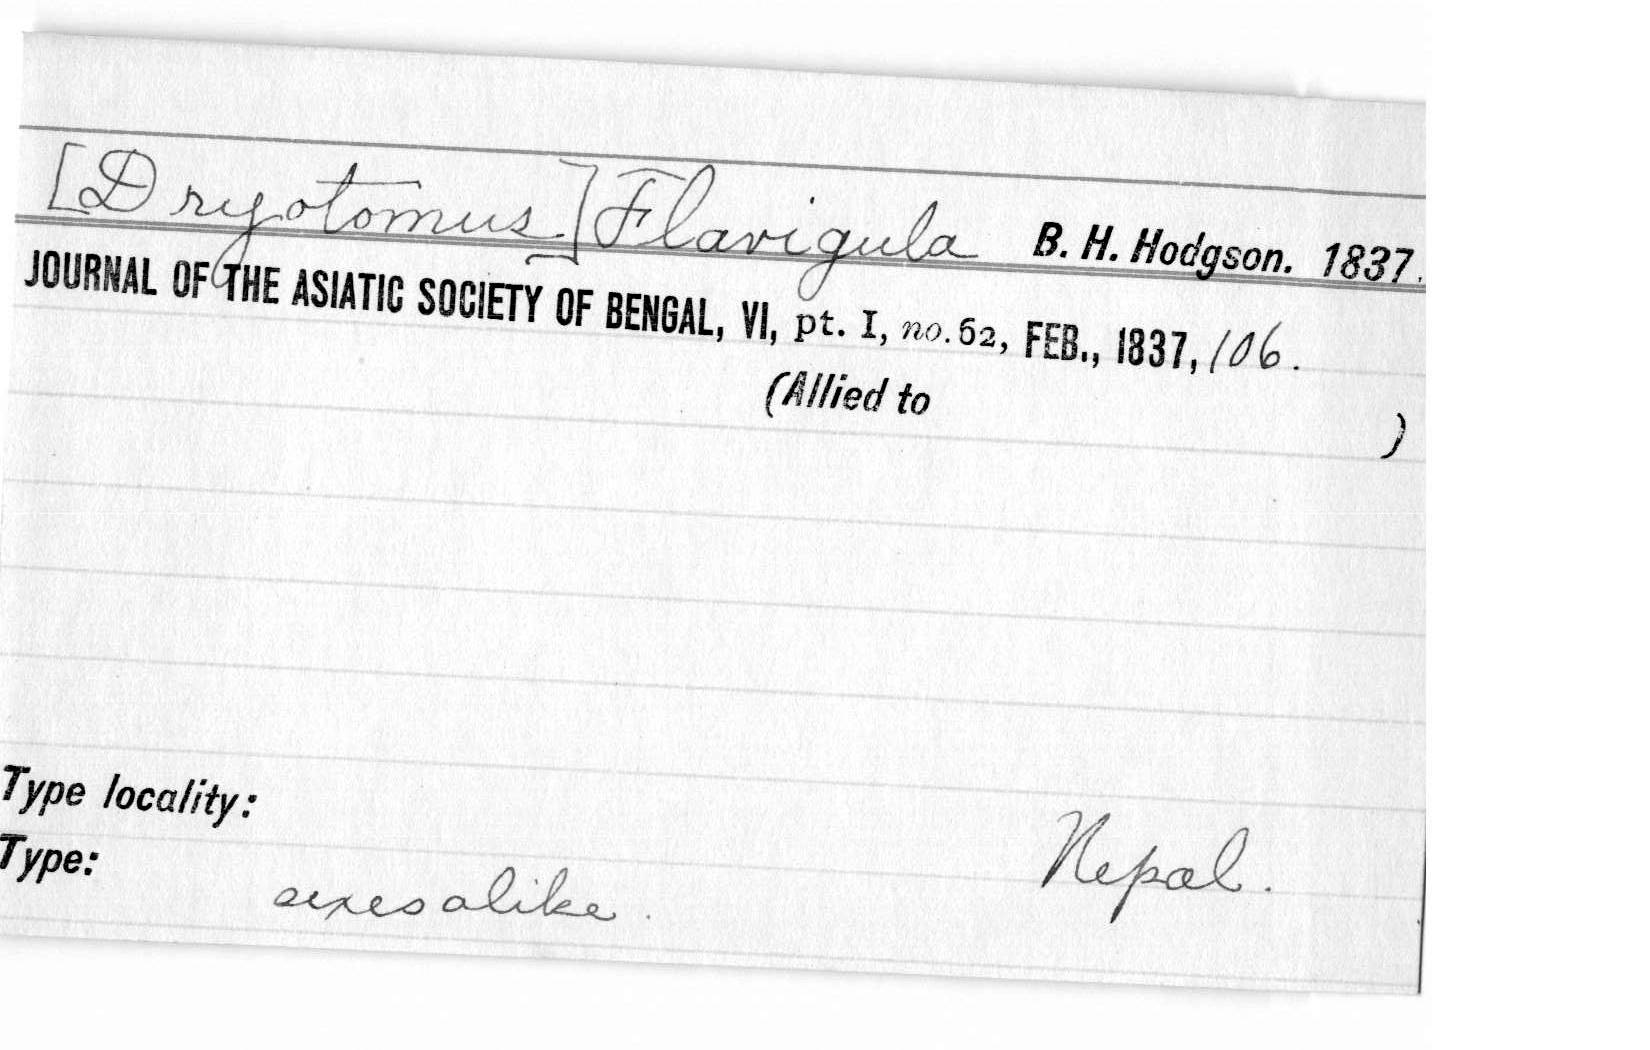 [Dryotomus] Flavigula B. H. Hodgson. 1837.
JOURNAL OF THE ASIATIC SOCIETY OF BENGAL, VI, pt. I, no. 62, FEB., 1837, 106.
(Allied to )
Type locality: Nepal.
Type: sexes alike.